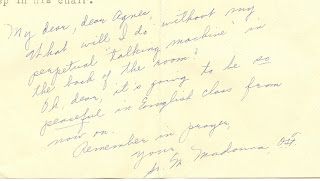 ep in his chair.
My dear, dear Agnes,
What will I do without my
perpetual "talking machine" in
the back of the room?
Oh, dear, it's going to be so
peaceful in English class from
now on.
Remember in prayer,
Your,
Sr. M. Madonna, OSF.